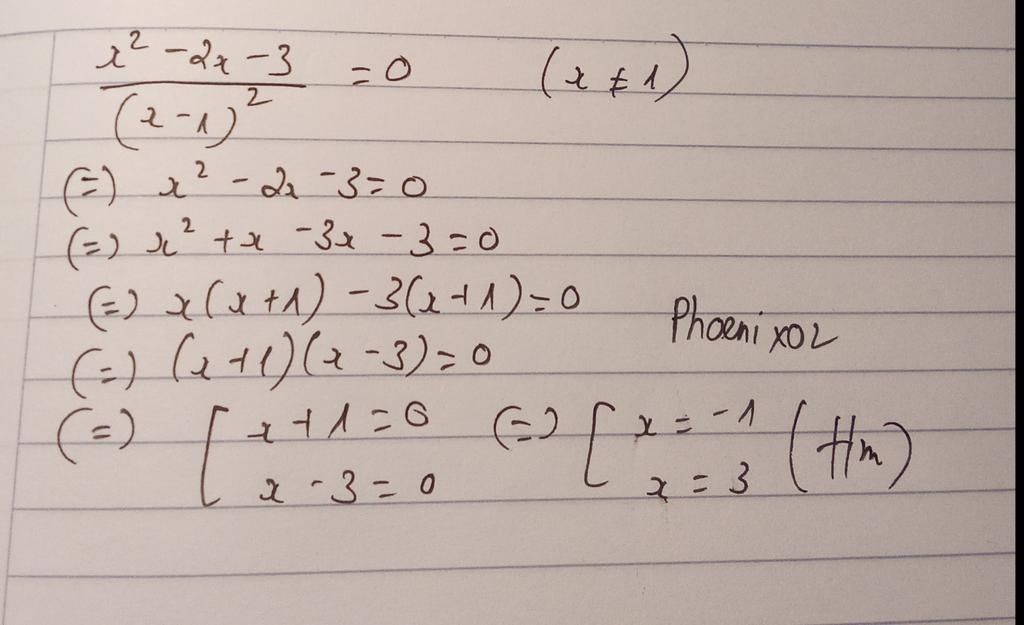 x² - 2x - 3 / (x - 1)² = 0 (x ≠ 1)
(=) x² - 2x - 3 = 0
(=) x² + x - 3x - 3 = 0
(=) x(x+1) - 3(x+1) = 0
Phoenix02
(=) (x+1)(x-3) = 0
(=) [ x+1 = 0 (=) [ x = -1 (tm)
x - 3 = 0 x = 3